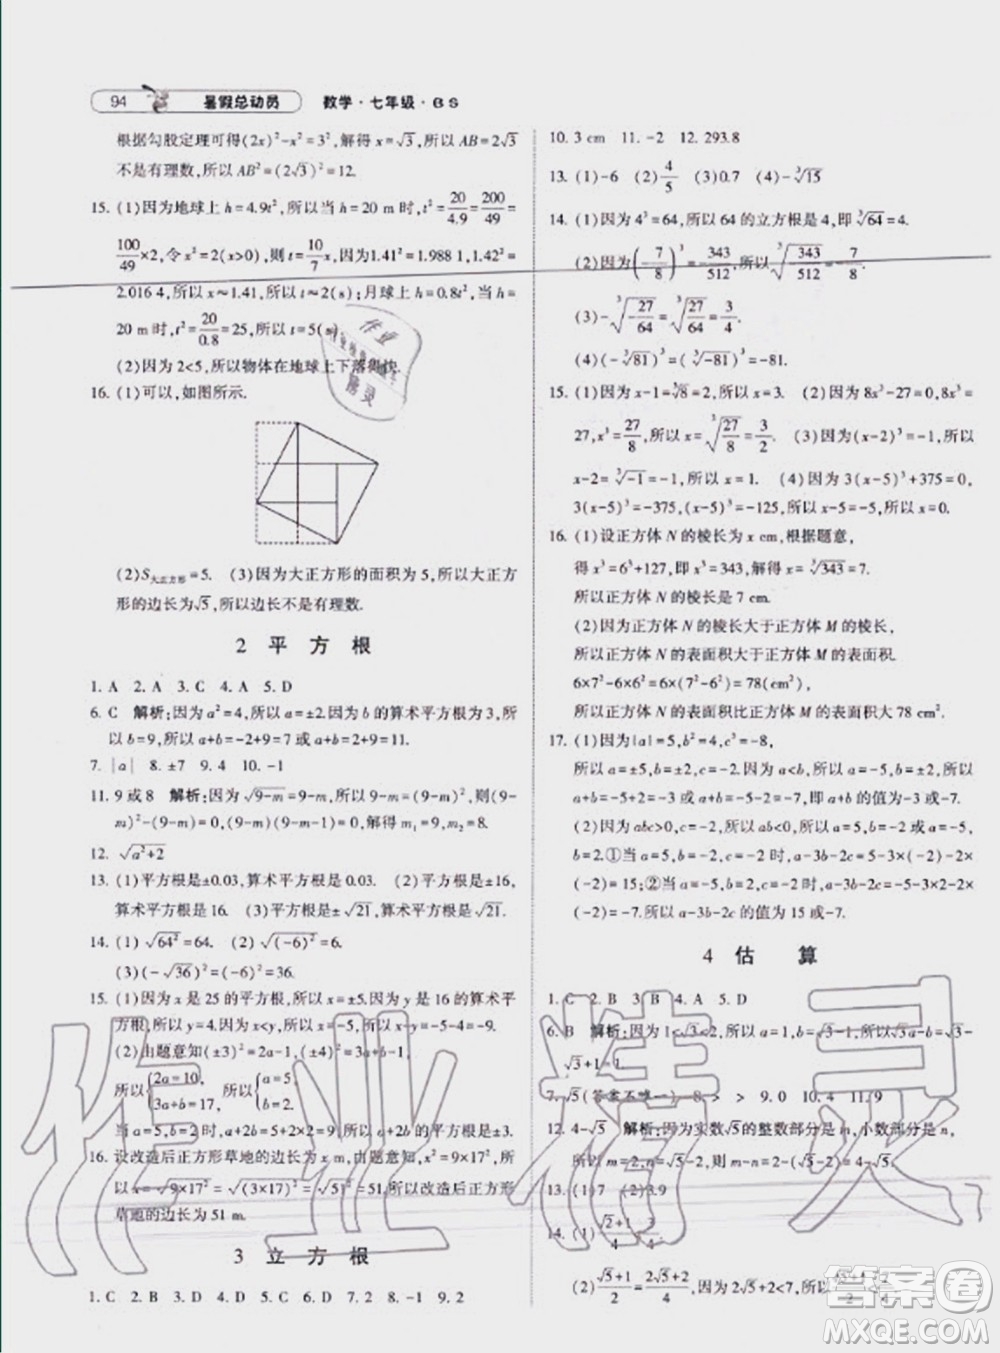 94 暑假总动员 数学·七年级·BS
根据勾股定理可得(2x)²-x²=3²,解得x=√3,所以AB=2√3
不是有理数,所以AB²=(2√3)²=12.
15. (1)因为地球上h=4.9t²,所以当h=20 m时,t²=20/4.9=200/49=
100/49×2,令x²=2(x>0),则t=10/7x,因为1.41²=1.988 1,1.42²=
2.016 4,所以x≈1.41,所以t≈2(s);月球上h=0.8t²,当h=
20 m时,t²=20/0.8=25,所以t=5(s)
(2)因为2<5,所以物体在地球上下落得快.
16. (1)可以,如图所示.
(2)S大正方形=5. (3)因为大正方形的面积为5,所以大正方
形的边长为√5,所以边长不是有理数.
2 平方根
1. A 2. A 3. C 4. A 5. D
6. C 解析:因为a²=4,所以a=±2.因为b的算术平方根为3,所
以b=9,所以a+b=-2+9=7或a+b=2+9=11.
7. |a| 8. ±7 9. 4 10. -1
11. 9或8 解析:因为√(9-m)=9-m,所以9-m=(9-m)²,则(9-
m)²-(9-m)=0,(9-m)(8-m)=0,解得m₁=9,m₂=8.
12. √(a²+2)
13. (1)平方根是±0.03,算术平方根是0.03. (2)平方根是±16,
算术平方根是16. (3)平方根是±√21,算术平方根是√21.
14. (1)√64²=64. (2)√(-6)²=6.
(3)(-√36)²=(-6)²=36.
15. (1)因为x是25的平方根,所以x=±5.因为y是16的算术平
方根,所以y=4.因为x<y,所以x=-5,所以x-y=-5-4=-9.
(2)由题意知(±3)²=2a-1,(±4)²=3a+b-1,
所以{2a=10, 3a+b=17, 所以{a=5, b=2,
当a=5,b=2时,a+2b=5+2×2=9.
16. 设改造后正方形草地的边长为x m,由题意知,x²=9×17²,所
以x=√(9×17²)=√(3×17)²=√51²=51.所以改造后正方形
草地的边长为51 m.
3 立方根
1. C 2. C 3. B 4. C 5. D 6. D 7. 2 8. -1 9. 2
10. 3 cm 11. -2 12. 293.8
13. (1)-6 (2)4/5 (3)0.7 (4)-∛15
14. (1)因为4³=64,所以64的立方根是4,即∛64=4.
(2)因为(-7/8)³=-343/512,所以∛(-343/512)=-7/8.
(3)-∛(-27/64)=∛(27/64)=3/4.
(4)(-∛81)³=(∛-81)³=-81.
15. (1)因为x-1=∛8=2,所以x=3. (2)因为8x³-27=0,8x³=
27,x³=27/8,所以x=∛(27/8)=3/2. (3)因为(x-2)³=-1,所以
x-2=∛-1=-1,所以x=1. (4)因为3(x-5)³+375=0,
3(x-5)³=-375,(x-5)³=-125,所以x-5=-5,所以x=0.
16. (1)设正方体N的棱长为x cm,根据题意,
得x³=6³+127,即x³=343,所以x=∛343=7.
所以正方体N的棱长是7 cm.
(2)因为正方体N的棱长大于正方体M的棱长,
所以正方体N的表面积大于正方体M的表面积.
6×7²-6×6²=6×(7²-6²)=78(cm²),
所以正方体N的表面积比正方体M的表面积大78 cm².
17. (1)因为|a|=5,b²=4,c³=-8,
所以a=±5,b=±2,c=-2,因为a<b,所以a=-5,b=±2,
所以a+b=-5+2=-3或a+b=-5-2=-7,即a+b的值为-3或-7.
(2)因为abc>0,c=-2,所以ab<0,所以a=5,b=-2或a=-5,
b=2.①当a=5,b=-2,c=-2时,a-3b-2c=5-3×(-2)-2×
(-2)=15;②当a=-5,b=2,c=-2时,a-3b-2c=-5-3×2-2×
(-2)=-7.所以a-3b-2c的值为15或-7.
4 估算
1. C 2. B 3. B 4. A 5. D
6. B 解析:因为1<√3<2,所以a=1,b=√3-1,所以a-b=√3-
√3+1=1.
7. √5(答案不唯一) 8. > > 9. 0 10. 4 11. 9
12. 4-√5 解析:因为实数√5的整数部分是m,小数部分是n,
所以m=2,n=√5-2,所以m-n=2-(√5-2)=2-√5+2=4-√5.
13. (1)7 (2)3.9
14. (1)
(2)(√5+1)/2=(2√5+2)/4,因为2√5+2
作业精灵
答案圈
MXQE.COM